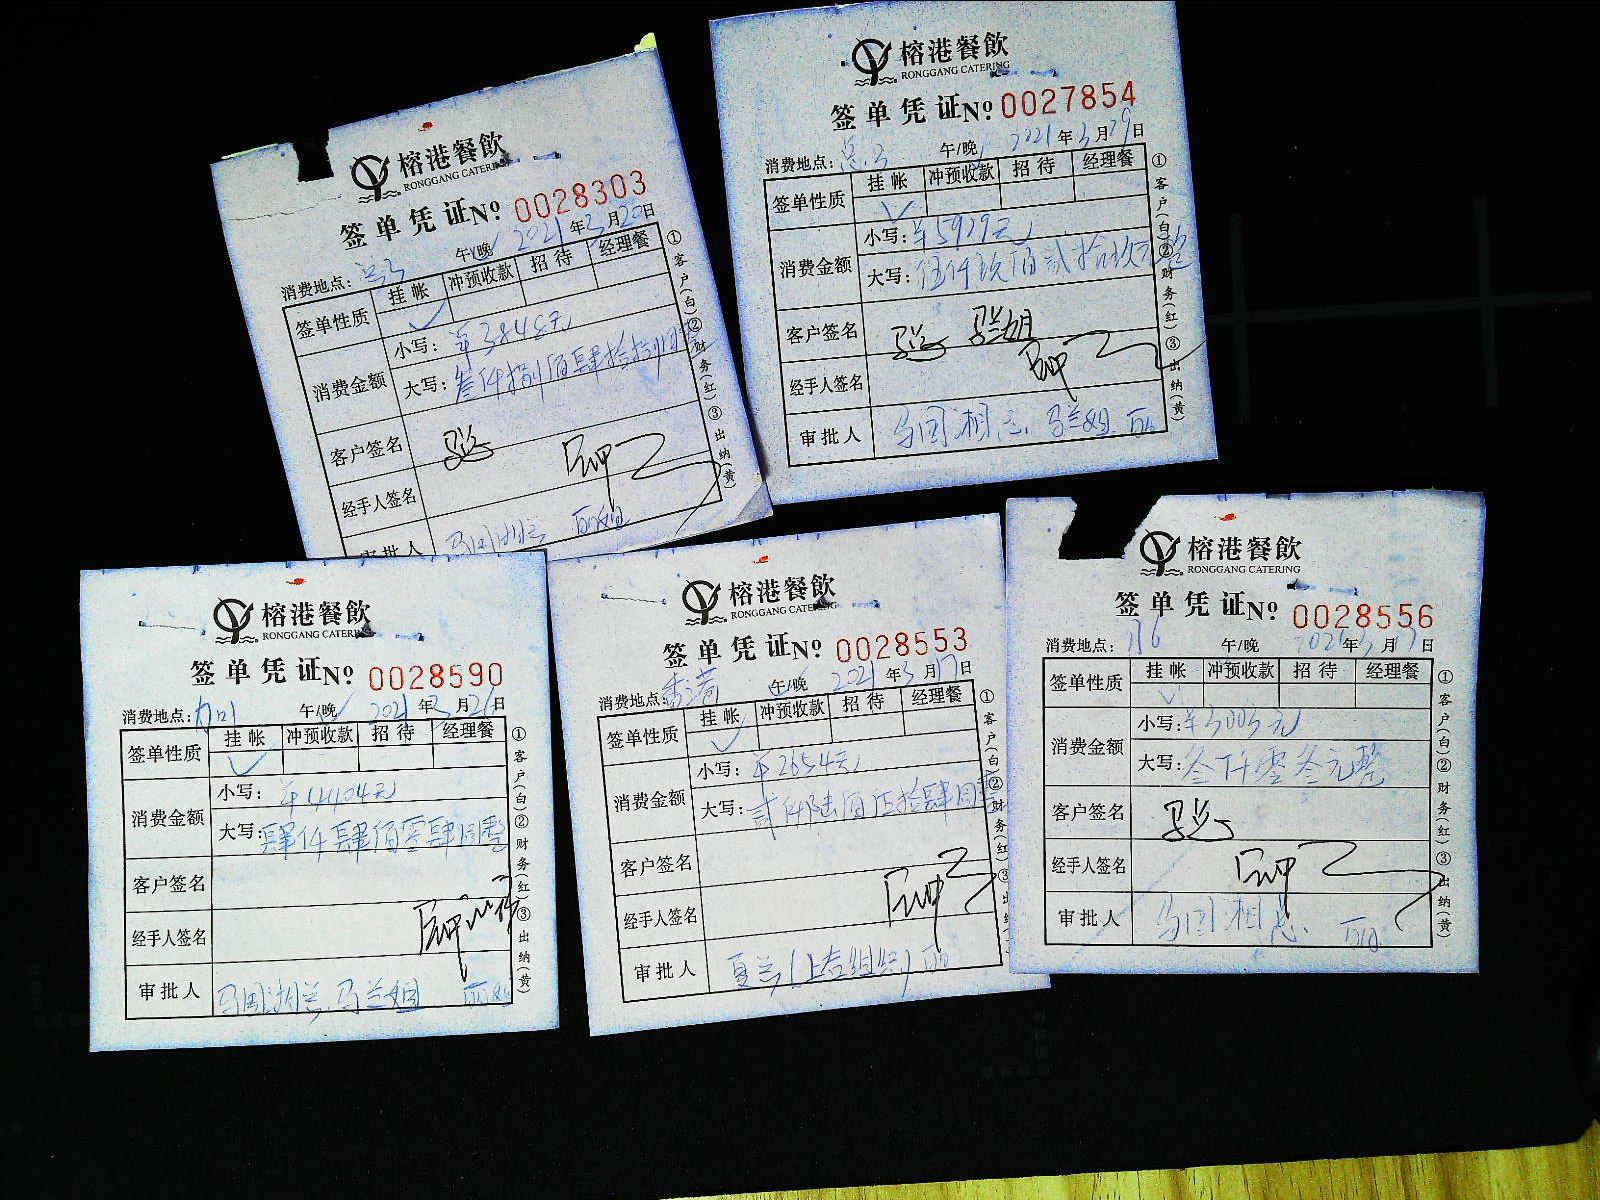 榕港餐飲
RONGGANG CATERING
签单凭证№ 0028303
消费地点: 午/晚 2021年3月20日
签单性质 挂帐 冲预收款 招待 经理餐
消费金额 小写: ¥3848元
大写: 叁仟捌佰肆拾捌
客户签名
经手人签名
审批人
①客户(白)②财务(红)③出纳(黄)
榕港餐飲
RONGGANG CATERING
签单凭证№ 0027854
消费地点: 午/晚 2021年3月29日
签单性质 挂帐 冲预收款 招待 经理餐
消费金额 小写: ¥5929元
大写: 伍仟玖佰贰拾玖元整
客户签名
经手人签名
审批人 马国湘总 马兰姐
①客户(白)②财务(红)③出纳(黄)
榕港餐飲
RONGGANG CATERING
签单凭证№ 0028590
消费地点: 午/晚 2021年3月26日
签单性质 挂帐 冲预收款 招待 经理餐
消费金额 小写: ¥4404元
大写: 肆仟肆佰零肆圆整
客户签名
经手人签名
审批人 马国湘总 马兰姐
①客户(白)②财务(红)③出纳(黄)
榕港餐飲
RONGGANG CATERING
签单凭证№ 0028553
消费地点: 香港 午/晚 2021年3月17日
签单性质 挂帐 冲预收款 招待 经理餐
消费金额 小写: ¥2654元
大写: 贰仟陆佰伍拾肆圆整
客户签名
经手人签名
审批人
①客户(白)②财务(红)③出纳(黄)
榕港餐飲
RONGGANG CATERING
签单凭证№ 0028556
消费地点: 午/晚 2021年3月17日
签单性质 挂帐 冲预收款 招待 经理餐
消费金额 小写: ¥3003元
大写: 叁仟零叁元整
客户签名
经手人签名
审批人 马国湘总
①客户(白)②财务(红)③出纳(黄)